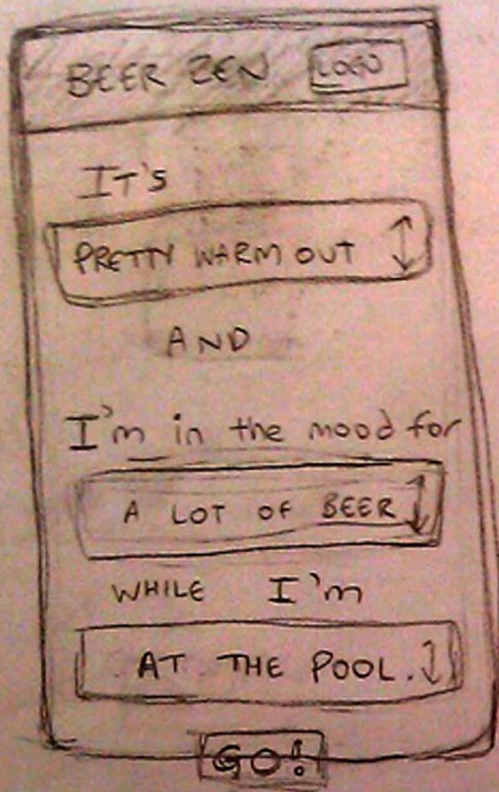 BEER ZEN LOGO
IT'S
PRETTY WARM OUT
AND
I'm in the mood for
A LOT OF BEER
WHILE I'm
AT THE POOL.
GO!